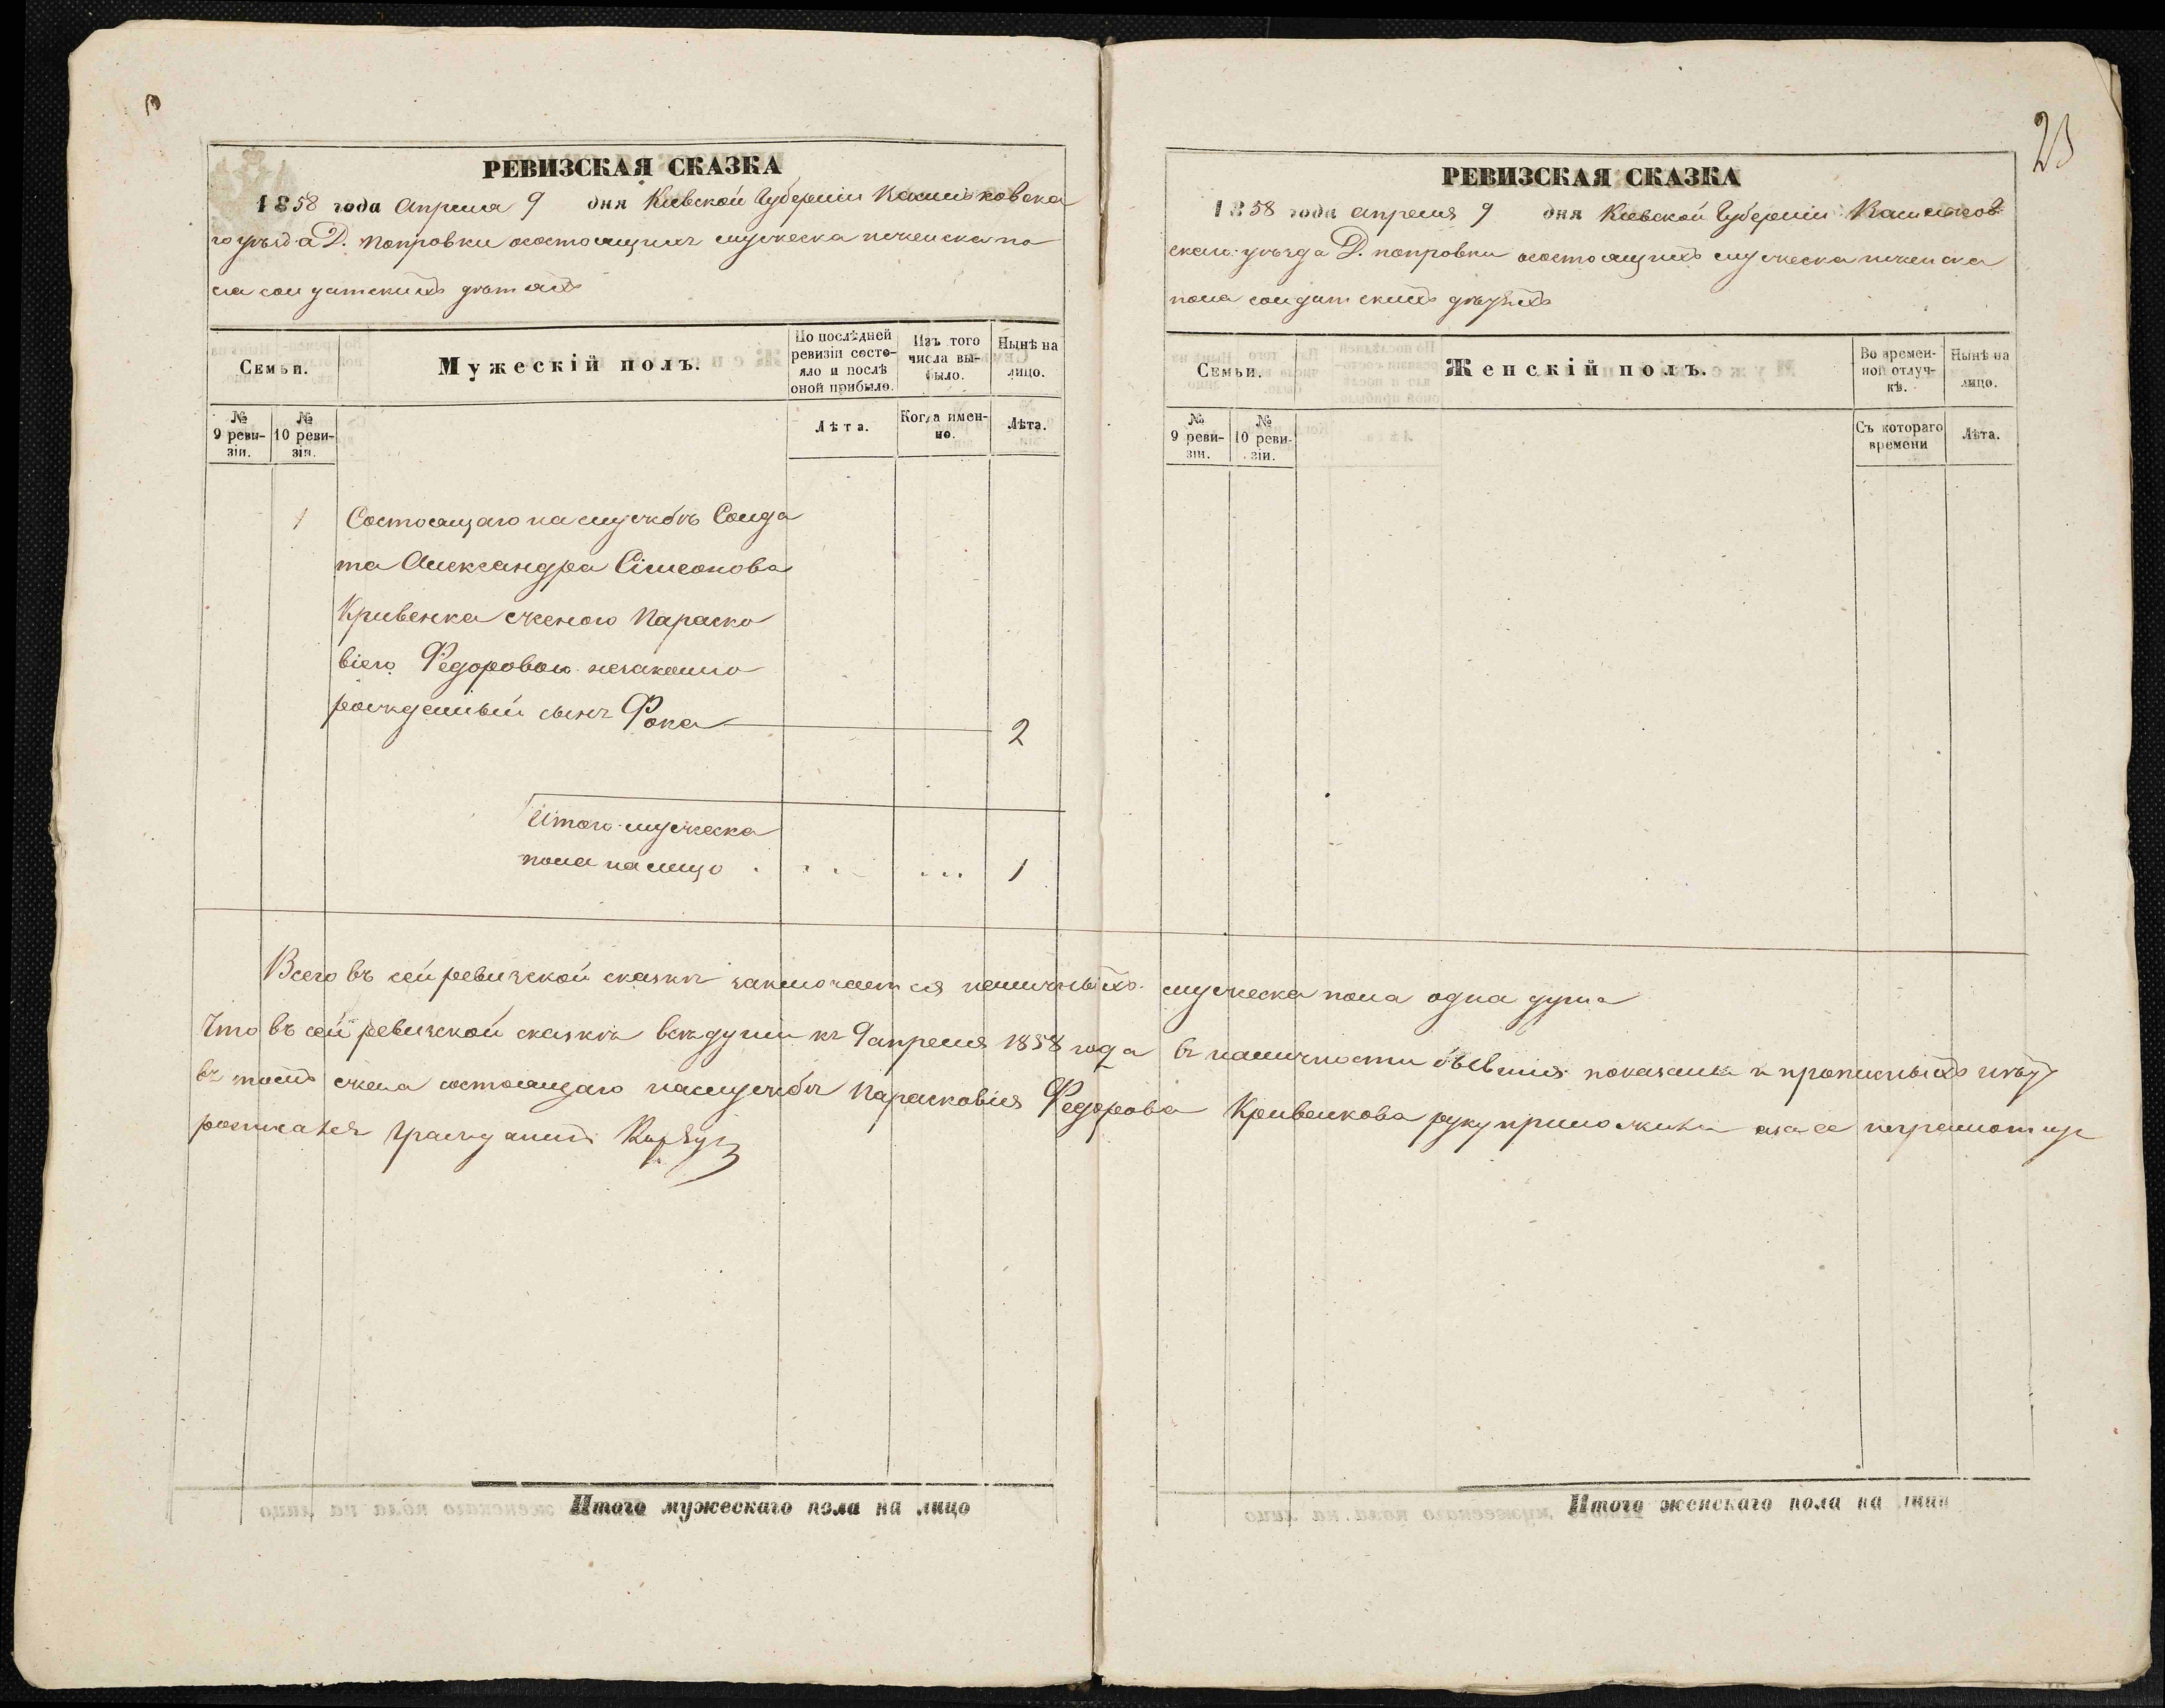 23
РЕВИЗСКАЯ СКАЗКА
1858 года Апреля 9 дня Киевской Губерніи
го уѣзда Д. Попровки осостоящихъ мужеска иженска по
ла солдатскихъ дѣтяхъ
Семьи.
Мужескій полъ.
По послѣдней ревизіи состояло и послѣ оной прибыло.
Изъ того числа выбыло.
Нынѣ на лицо.
№ 9 ревизіи.
№ 10 ревизіи.
Лѣта.
Когда именно.
Лѣта.
1 Состоящаго наслужбѣ Солда
та Александра Сімеонова
Кривенка сженою Параско
віею Федоровою незаконно
рожденный сынъ Фока 2
Итого мужеска
пола налицо . . . . . . . 1
РЕВИЗСКАЯ СКАЗКА
1858 года апреля 9 дня Киевской Губерніи
скаго уѣзда Д. попровки осостоящихъ мужеска иженска
пола солдатскихъ
Семьи.
Женскій полъ.
Во временной отлучкѣ.
Нынѣ на лицо.
№ 9 ревизіи.
№ 10 ревизіи.
Съ котораго времени
Лѣта.
Всего въ сей ревизской сказкѣ заключается наличныхъ мужеска пола одна душа
Что въ сей ревизской сказкѣ всѣ души къ 9 апреля 1858 года въ наличности бывшія показаны и прописныхъ нѣтъ
въ томъ жена состоящаго наслужбѣ Парасковія Федорова Кривенкова руку приложила азаее неграмотную
росписался
Итого мужескаго пола на лицо
Итого женскаго пола на лицо